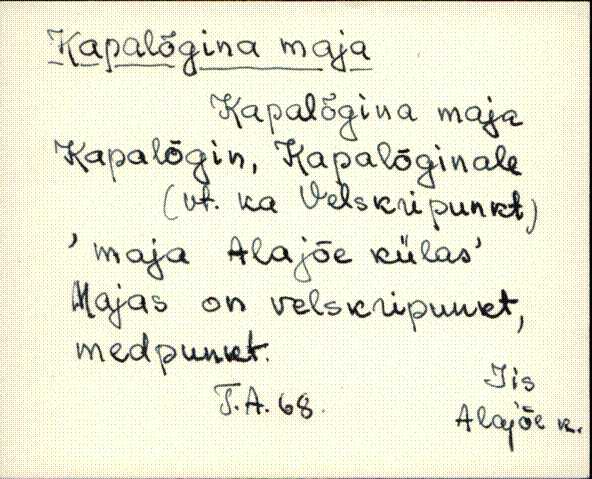 Kapalõgina maja
Kapalõgina maja
Kapalõgin, Kapalõginale
(vt. ka Velskripunkt)
'maja Alajõe külas'
Majas on velskripunkt,
medpunkt.
T.A. 68.
Iis
Alajõe k.